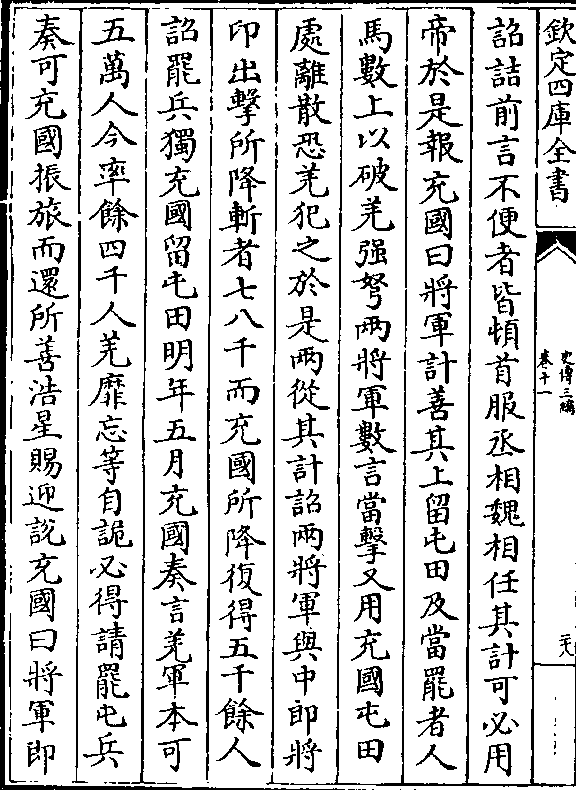 欽定四庫全書
史傳三編
卷十一
天
詔詰前言不便者皆頓首服丞相魏相任其計可必用
帝於是報充國曰將軍計善其上留屯田及當罷者人
馬數上以破羌强弩兩將軍數言當擊又用充國屯田
處離散恐羌犯之於是兩從其計詔兩將軍與中郎將
卬出擊所降斬者七八千而充國所降復得五千餘人
詔罷兵獨充國留屯田明年五月充國奏言羌軍本可
五萬人今率餘四千人羌靡忘等自詭必得請罷屯兵
奏可充國振旅而還所善浩星賜迎說充國曰將軍即